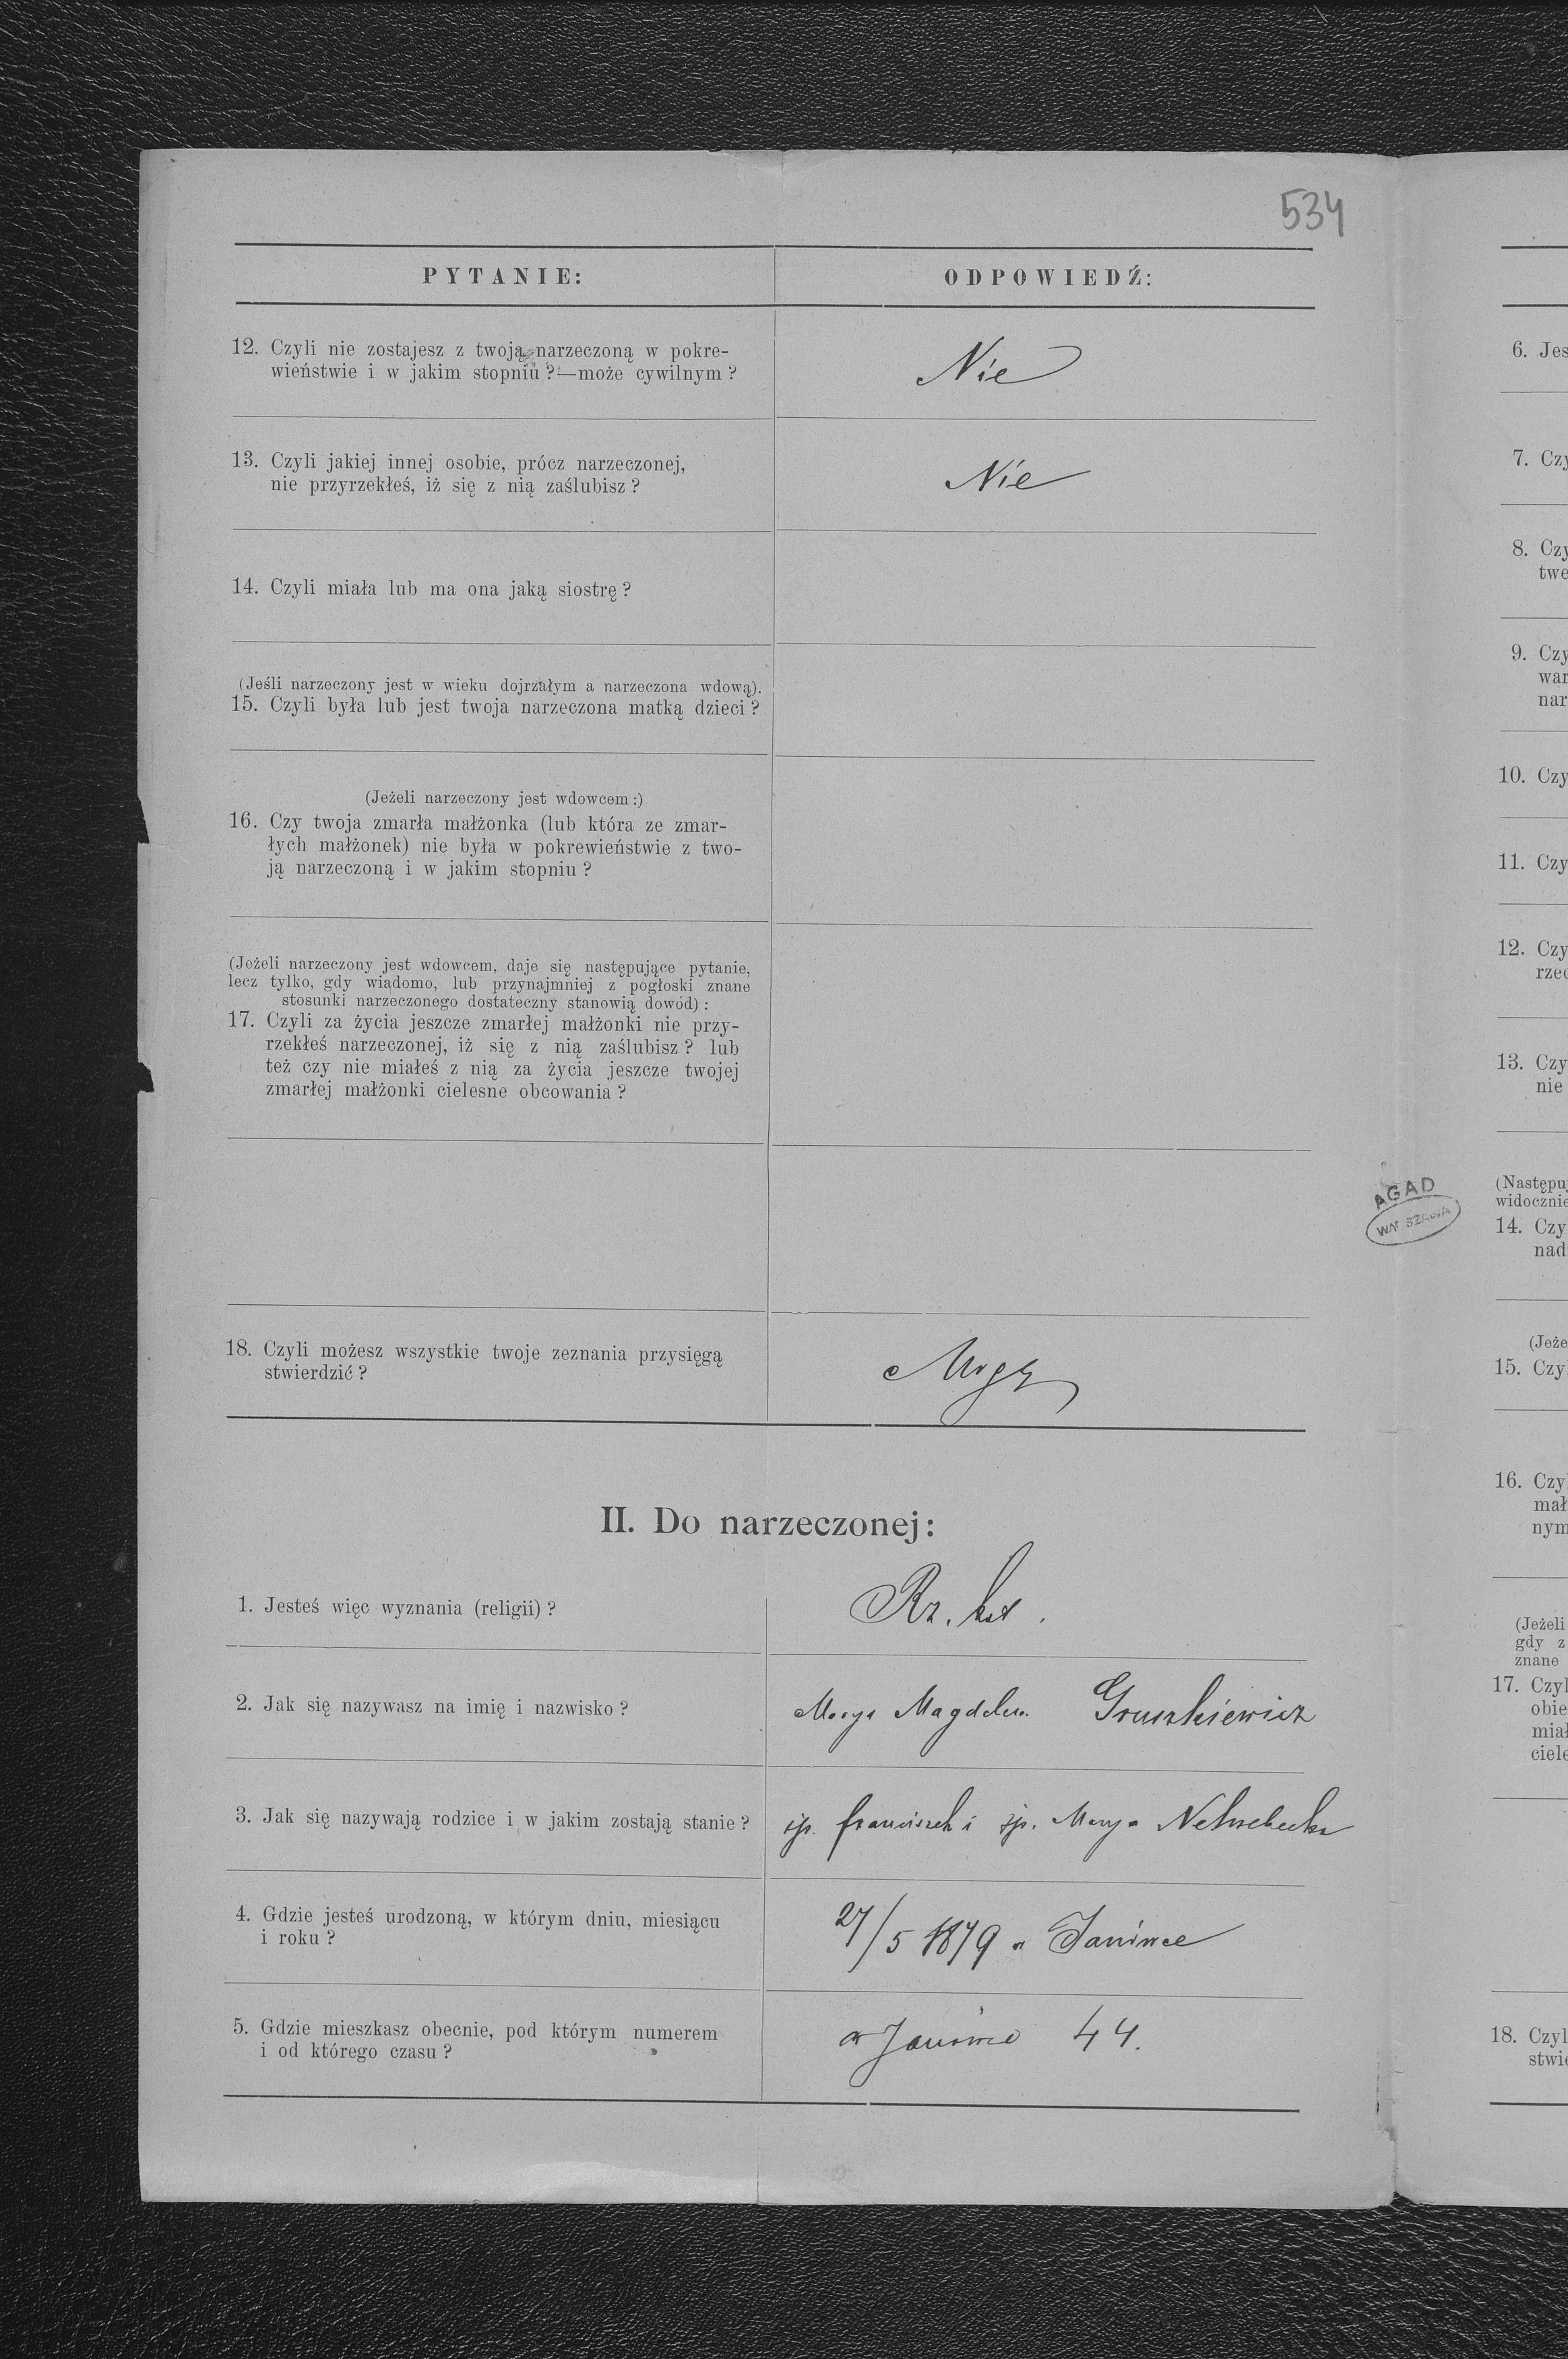 534
PYTANIE: ODPOWIEDŹ:
12. Czyli nie zostajesz z twoją narzeczoną w pokre-
wieństwie i w jakim stopniu?—może cywilnym?
Nie
13. Czyli jakiej innej osobie, prócz narzeczonej,
nie przyrzekłeś, iż się z nią zaślubisz?
Nie
14. Czyli miała lub ma ona jaką siostrę?
(Jeśli narzeczony jest w wieku dojrzałym a narzeczona wdową).
15. Czyli była lub jest twoja narzeczona matką dzieci?
(Jeżeli narzeczony jest wdowcem:)
16. Czy twoja zmarła małżonka (lub która ze zmar-
łych małżonek) nie była w pokrewieństwie z two-
ją narzeczoną i w jakim stopniu?
(Jeżeli narzeczony jest wdowcem, daje się następujące pytanie,
lecz tylko, gdy wiadomo, lub przynajmniej z pogłoski znane
stosunki narzeczonego dostateczny stanowią dowód):
17. Czyli za życia jeszcze zmarłej małżonki nie przy-
rzekłeś narzeczonej, iż się z nią zaślubisz? lub
też czy nie miałeś z nią za życia jeszcze twojej
zmarłej małżonki cielesne obcowania?
18. Czyli możesz wszystkie twoje zeznania przysięgą
stwierdzić?
Mogę
II. Do narzeczonej:
1. Jesteś więc wyznania (religii)?
Rz. kat.
2. Jak się nazywasz na imię i nazwisko?
Marya Magdalena Gruszkiewicz
3. Jak się nazywają rodzice i w jakim zostają stanie?
śp. Franciszek i śp. Marya
4. Gdzie jesteś urodzoną, w którym dniu, miesiącu
i roku?
27/5 1879 w Janówce
5. Gdzie mieszkasz obecnie, pod którym numerem
i od którego czasu?
w Janówce 44.
AGAD
WARSZAWA
6. Jes
7. Czy
8. Czy
twe
9. Czy
war
nar
10. Czy
11. Czy
12. Czy
rzec
13. Czy
nie
(Następuj
widocznie
14. Czy
nad
(Jeże
15. Czy
16. Czy
mał
nym
(Jeżeli
gdy z
znane
17. Czyl
obie
miał
ciele
18. Czyl
stwie